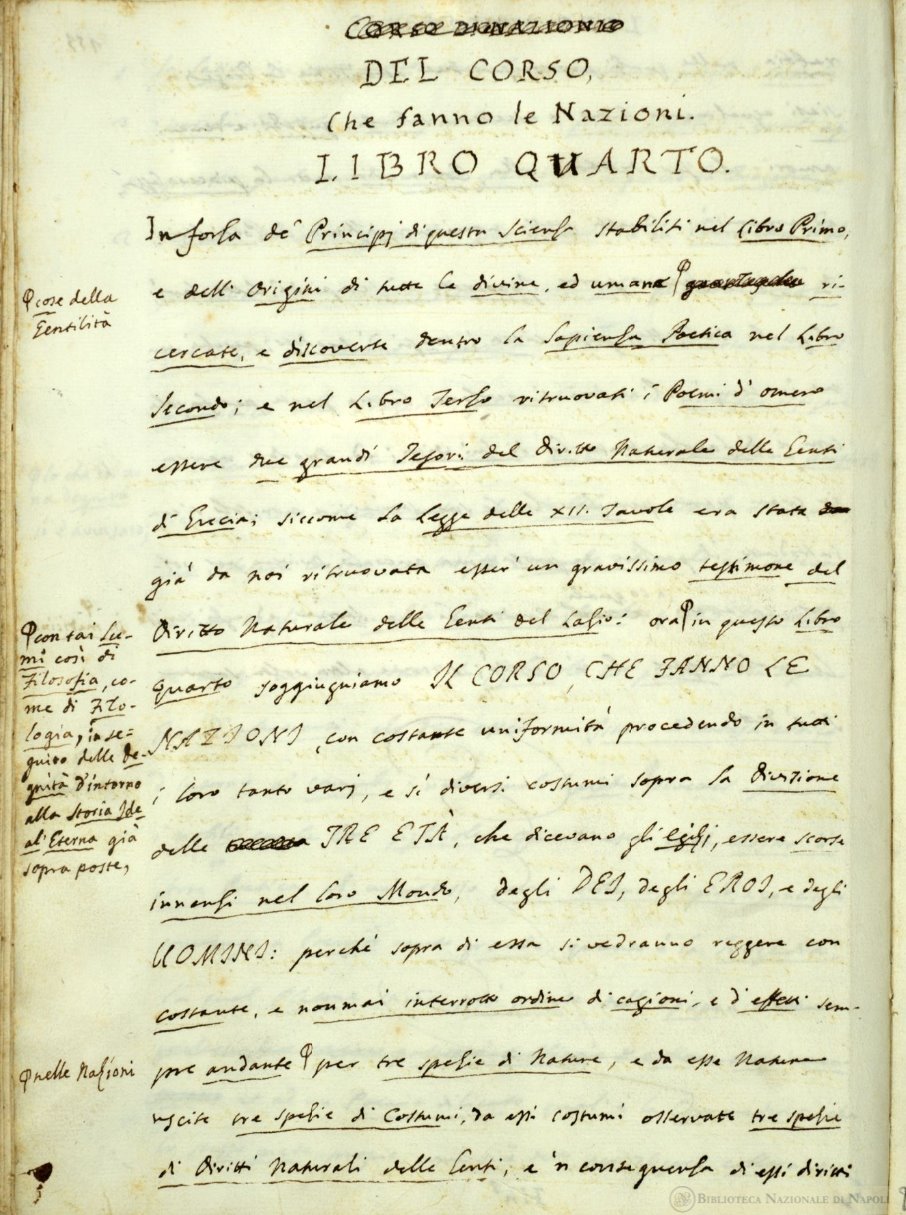 CORSO DI NAZIONIO
DEL CORSO,
Che fanno le Nazioni.
LIBRO QUARTO.
In forza de' Principj di questa Scienza stabiliti nel Libro Primo,
e dell' Origini di tutte le divine, ed umane ri-
cercate, e discoverte dentro la Sapienza Poetica nel Libro
Secondo; e nel Libro Terzo ritruovati i Poemi d' Omero
essere due grandi Tesori del Diritto Naturale delle Genti
di Grecia; siccome la Legge delle XII. Tavole era stata
già da noi ritruovata esser' un gravissimo testimone del
Diritto Naturale delle Genti del Lazio: ora in questo Libro
Quarto soggiugniamo IL CORSO, CHE FANNO LE
NAZIONI, con costante uniformità procedendo in tutti
i loro tanto varj, e sì diversi costumi sopra la Divisione
delle TRE ETÀ, che dicevano gli Egizj, essere scorse
innanzi nel loro Mondo, degli DEI, degli EROI, e degli
UOMINI: perchè sopra di essa si vedranno reggere con
costante, e nonmai interrotto ordine di cagioni, e d' effetti sem-
pre andante per tre spezie di Nature, e da esse Nature
uscite tre spezie di Costumi, da essi costumi osservate tre spezie
di Diritti Naturali delle Genti, e 'n conseguenza di essi diritti
cose della
Gentilità
con tai Lu-
mi così di
Filosofia, co-
me di Filo-
logia, in se-
guito delle De-
gnità d'intorno
alla Storia Ide
al' Eterna già
sopra poste,
nelle Nazioni
BIBLIOTECA NAZIONALE DI NAPOLI